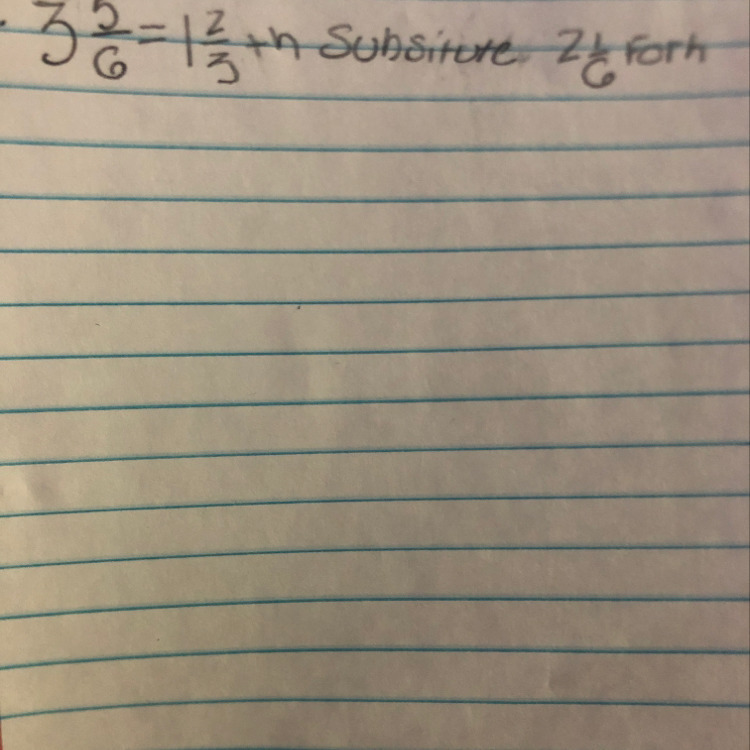 . 3 5/6 = 1 2/3 + n Subsiture 2 1/6 For n